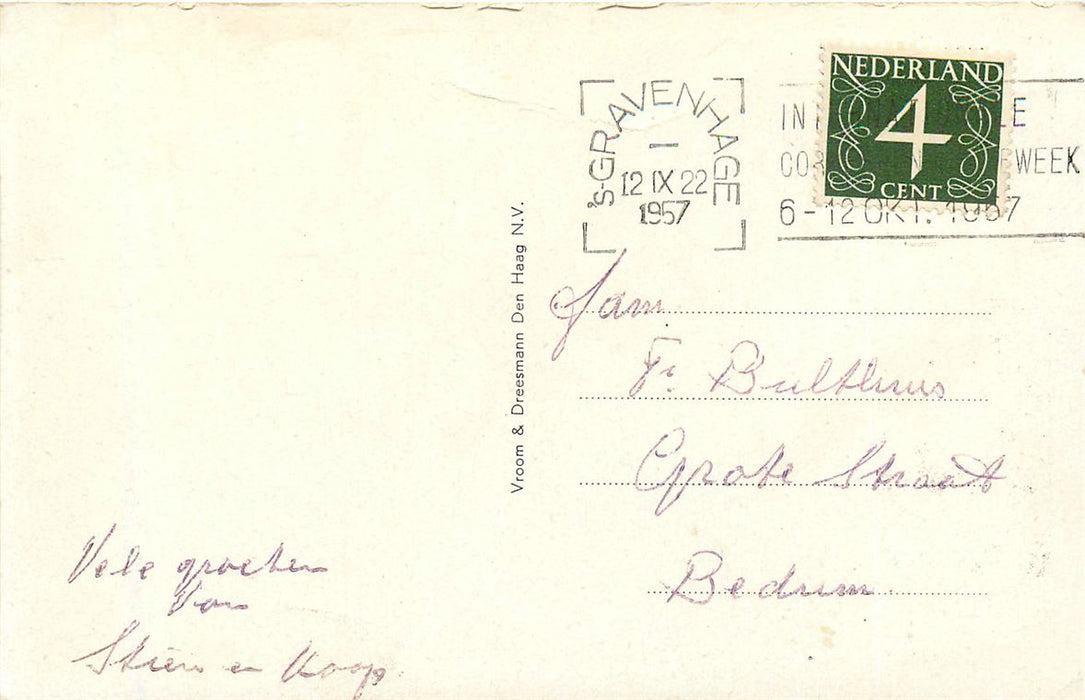 NEDERLAND
4
CENT
's-GRAVENHAGE
12 IX 22
1957
6 - 12 OKT. 1957
Vroom & Dreesmann Den Haag N.V.
Fam
Fr. Bulthuis
Grote Straat
Bedum
Vele groeten
van
Stien en Koop